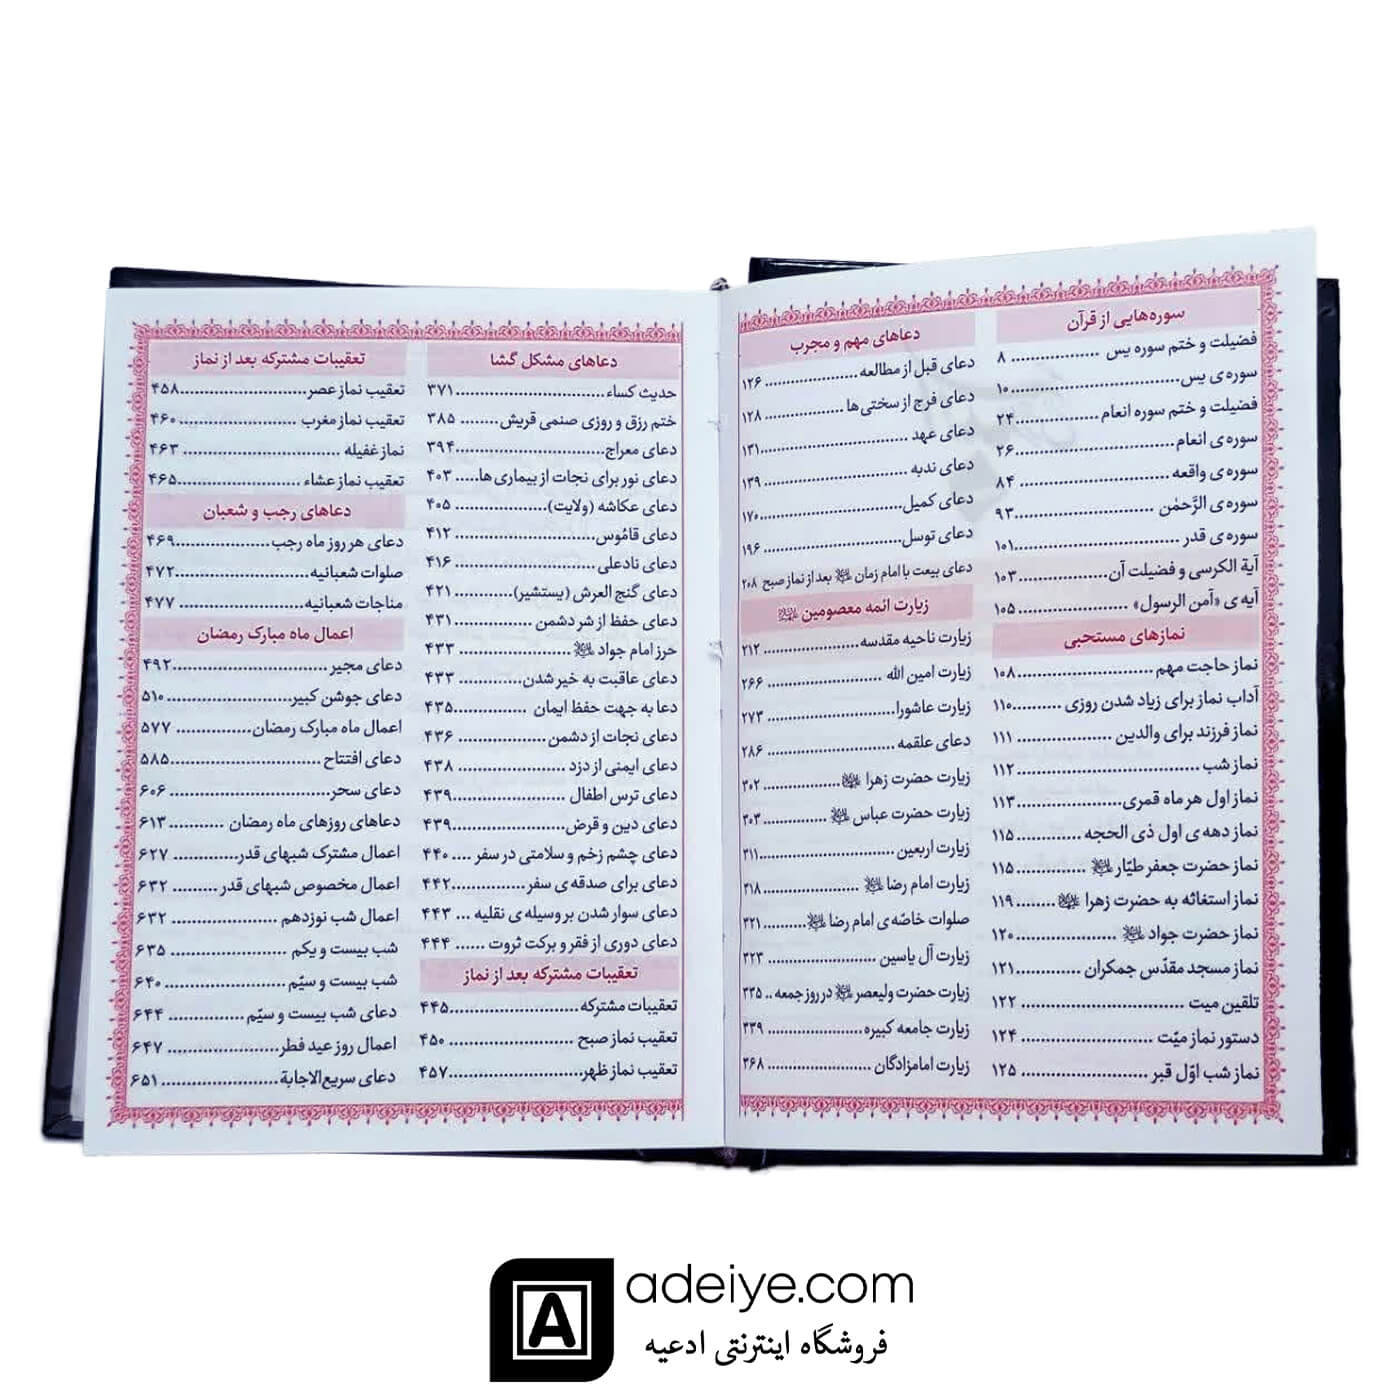 سوره‌هایی از قرآن
فضیلت و ختم سوره یس .................. ۸
سوره‌ی یس.................................۱۰
فضیلت و ختم سوره انعام ................ ۲۴
سوره‌ی انعام.............................. ۲۶
سوره‌ی واقعه .............................. ۸۴
سوره‌ی الرَّحمٰن ............................ ۹۳
سوره‌ی قدر...............................۱۰۱
آیة الکرسی و فضیلت آن....................۱۰۳
آیه‌ی «آمن الرسول» ...................... ۱۰۵
نمازهای مستحبی
نماز حاجت مهم ............................۱۰۸
آداب نماز برای زیاد شدن روزی ..........۱۱۰
نماز فرزند برای والدین .................... ۱۱۱
نماز شب ................................... ۱۱۲
نماز اول هر ماه قمری......................۱۱۳
نماز دهه‌ی اول ذی الحجه ................ ۱۱۵
نماز حضرت جعفر طیّار ................. ۱۱۵
نماز استغاثه به حضرت زهرا ........۱۱۹
نماز حضرت جواد ................... ۱۲۰
نماز مسجد مقدّس جمکران ............. ۱۲۱
تلقین میت ................................ ۱۲۲
دستور نماز میّت .......................... ۱۲۴
نماز شب اوّل قبر ......................... ۱۲۵
دعاهای مهم و مجرب
دعای قبل از مطالعه ...................... ۱۲۶
دعای فرج از سختی‌ها .................... ۱۲۸
دعای عهد ................................ ۱۳۱
دعای ندبه ................................ ۱۳۹
دعای کمیل................................۱۷۰
دعای توسل................................ ۱۹۶
دعای بیعت با امام زمان بعد از نماز صبح ۲۰۸
زیارت ائمه معصومین
زیارت ناحیه مقدسه ...................... ۲۱۲
زیارت امین الله ........................... ۲۶۶
زیارت عاشورا.............................. ۲۷۳
دعای علقمه .............................. ۲۸۶
زیارت حضرت زهرا .................. ۳۰۲
زیارت حضرت عباس ............... ۳۰۳
زیارت اربعین ..............................۳۱۱
زیارت امام رضا ........................ ۳۱۸
صلوات خاصّه‌ی امام رضا .......... ۳۲۱
زیارت آل یاسین .......................... ۳۲۳
زیارت حضرت ولیعصر در روز جمعه .. ۳۳۵
زیارت جامعه کبیره........................ ۳۳۹
زیارت امامزادگان ......................... ۳۶۸
دعاهای مشکل گشا
حدیث کساء................................۳۷۱
ختم رزق و روزی صنمی قریش ........ ۳۸۵
دعای معراج................................۳۹۴
دعای نور برای نجات از بیماری ها..... ۴۰۳
دعای عکاشه (ولایت).................... ۴۰۵
دعای قامُوس.............................. ۴۱۲
دعای نادعلی .............................. ۴۱۶
دعای گنج العرش (یستشیر)............ ۴۲۱
دعای حفظ از شر دشمن ................ ۴۳۱
حرز امام جواد ........................ ۴۳۳
دعای عاقبت به خیر شدن............... ۴۳۳
دعا به جهت حفظ ایمان ...............۴۳۵
دعای نجات از دشمن.................... ۴۳۶
دعای ایمنی از دزد ....................... ۴۳۸
دعای ترس اطفال ........................۴۳۹
دعای دین و قرض........................۴۳۹
دعای چشم زخم و سلامتی در سفر .... ۴۴۰
دعای برای صدقه‌ی سفر................۴۴۲
دعای سوار شدن بر وسیله‌ی نقلیه ... ۴۴۳
دعای دوری از فقر و برکت ثروت ...... ۴۴۴
تعقیبات مشترکه بعد از نماز
تعقیبات مشترکه...........................۴۴۵
تعقیب نماز صبح ......................... ۴۵۰
تعقیب نماز ظهر...........................۴۵۷
تعقیبات مشترکه بعد از نماز
تعقیب نماز عصر..........................۴۵۸
تعقیب نماز مغرب ........................ ۴۶۰
نماز غفیله ................................ ۴۶۳
تعقیب نماز عشاء .........................۴۶۵
دعاهای رجب و شعبان
دعای هر روز ماه رجب....................۴۶۹
صلوات شعبانیه............................۴۷۲
مناجات شعبانیه.......................... ۴۷۷
اعمال ماه مبارک رمضان
دعای مجیر ................................۴۹۲
دعای جوشن کبیر.........................۵۱۰
اعمال ماه مبارک رمضان................ ۵۷۷
دعای افتتاح ..............................۵۸۵
دعای سحر................................ ۶۰۶
دعاهای روزهای ماه رمضان ............ ۶۱۳
اعمال مشترک شبهای قدر.............. ۶۲۷
اعمال مخصوص شبهای قدر ......... ۶۳۲
اعمال شب نوزدهم ...................... ۶۳۲
شب بیست و یکم ....................... ۶۳۵
شب بیست و سیّم ...................... ۶۴۰
دعای شب بیست و سیّم ............... ۶۴۴
اعمال روز عید فطر ...................... ۶۴۷
دعای سریع‌الاجابة ....................... ۶۵۱
A
adeiye.com
فروشگاه اینترنتی ادعیه